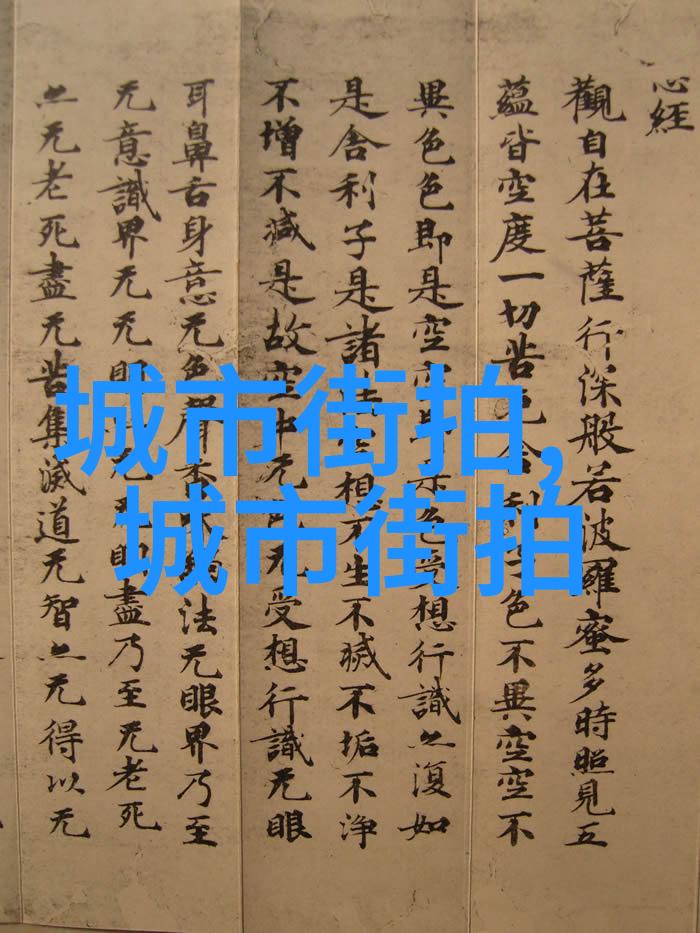 心経
觀自在菩薩行深般若波羅蜜多時照見五
蘊皆空度一切苦厄舍利子色不異空空不
異色色即是空空即是色受想行識亦復如
是舍利子是諸法空想不生不滅不垢不淨
不增不減是故空中无色无受想行識无眼
耳鼻舌身意无色聲香味觸法无眼界乃至
无意識界无无明亦无无明盡乃至无老死
亦无老死盡无苦集滅道无智亦无得以无
城市街拍,
城市街拍